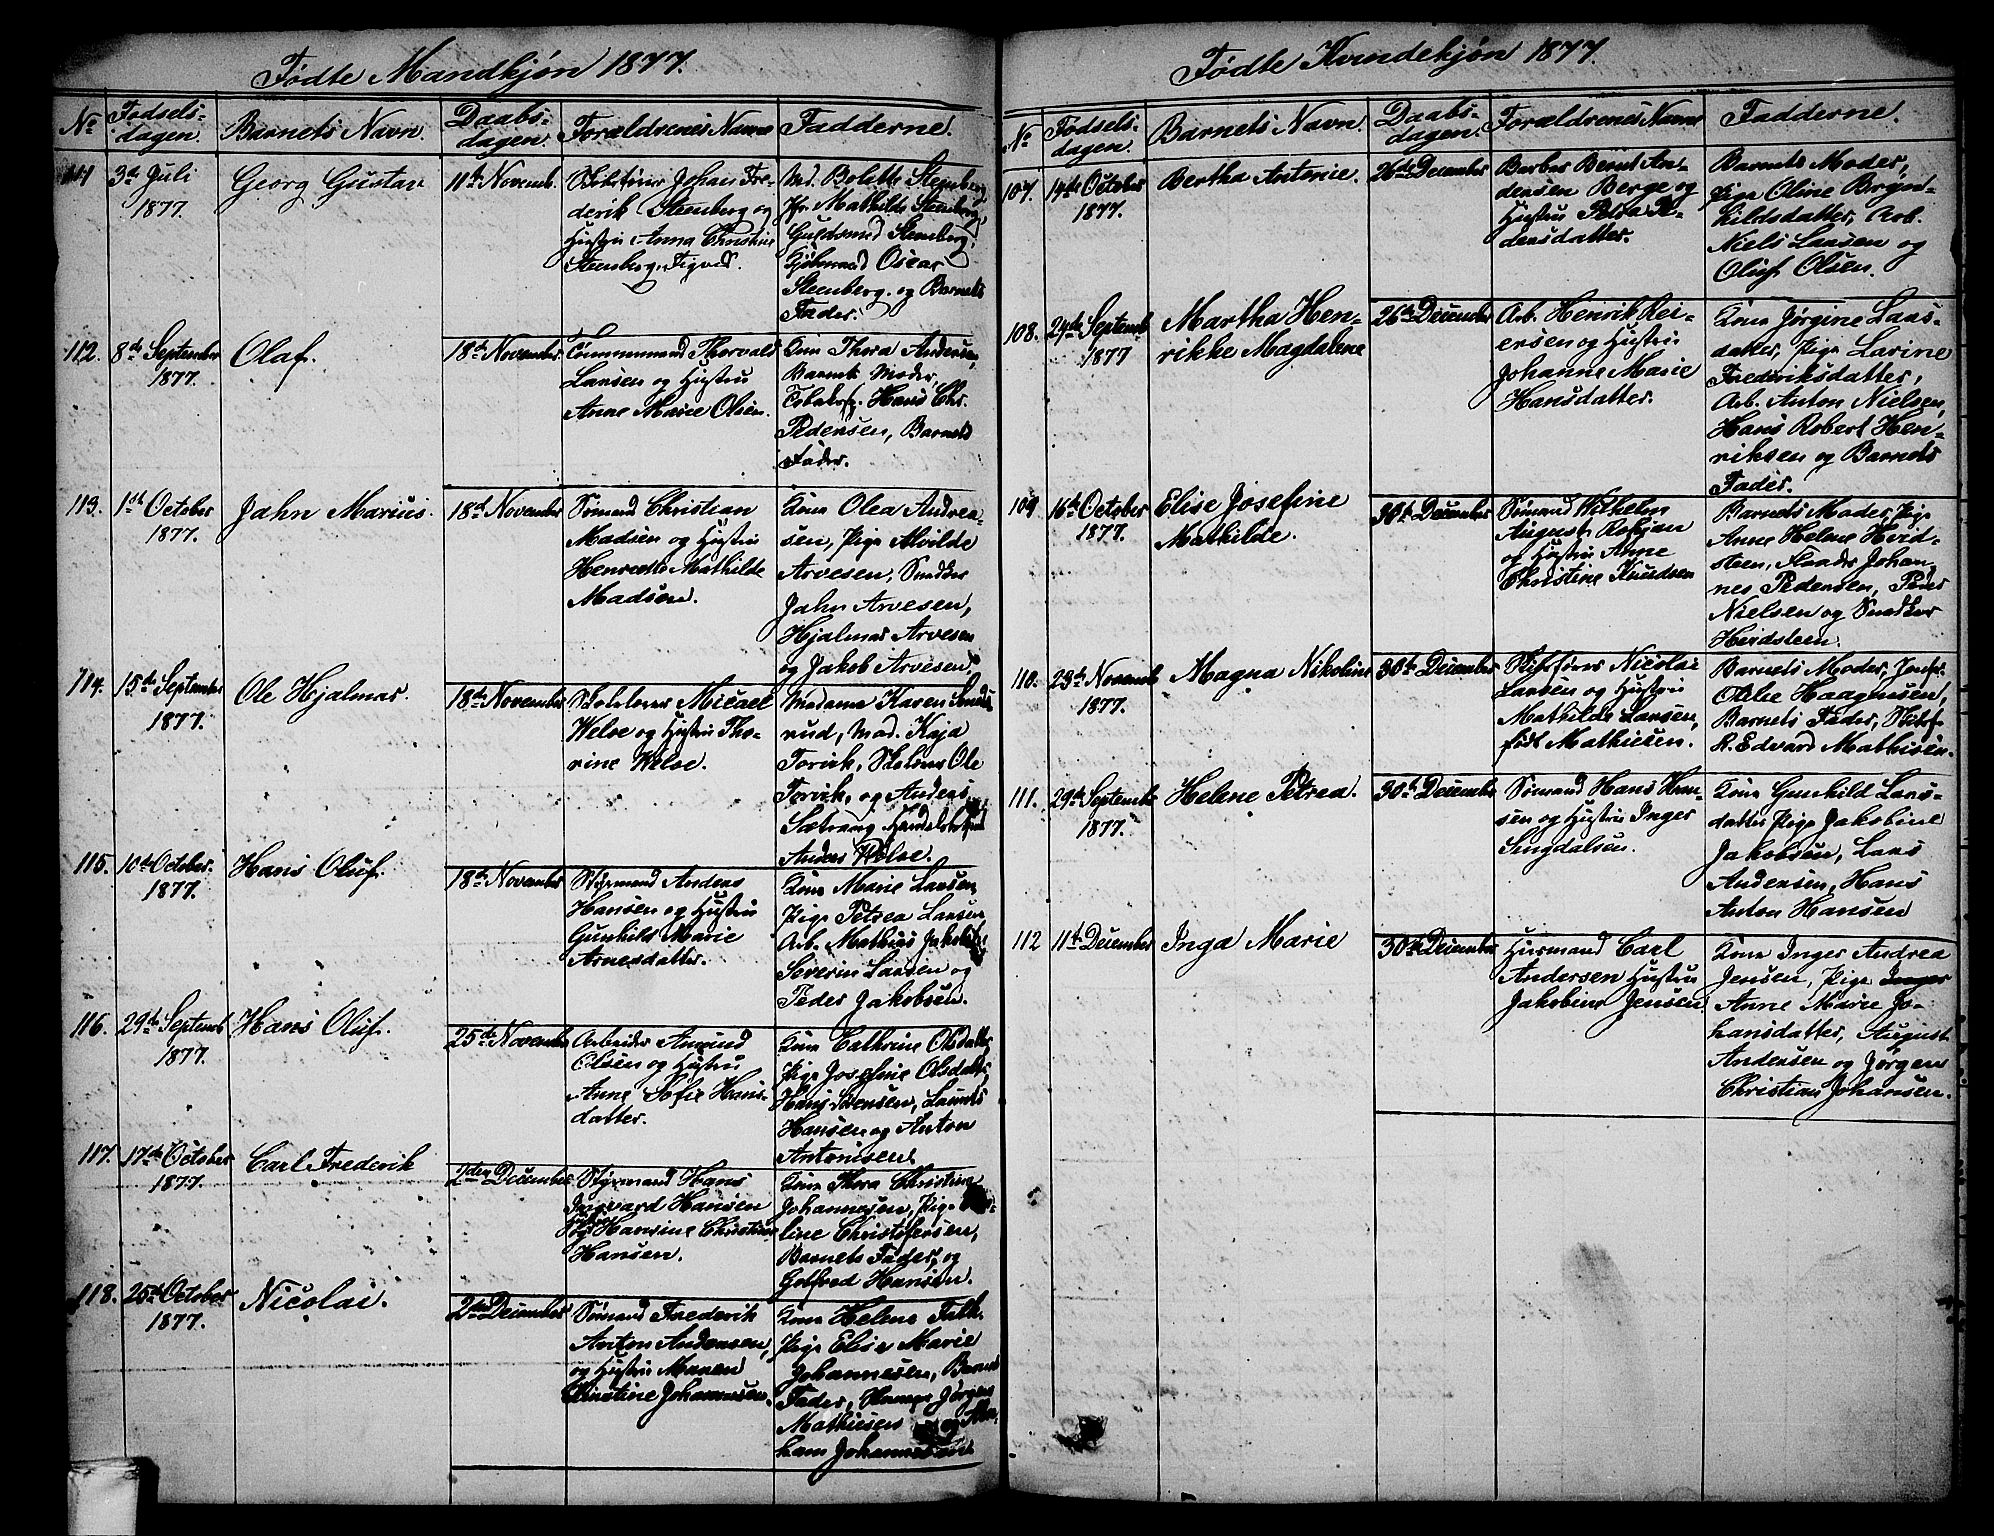 Fødte Mandkjøn 1877.
No
Fødsels-
dagen.
Barnets Navn.
Daabs-
dagen.
Forældrenes Navne
Fadderne.
111
3de Juli
1877.
Georg Gustav
11te Novemb.
Johan Fre-
derik Steenberg og
Hustru Anna Christine
Steenberg,
Md. Bolette Steenberg
Mathilde Steenberg,
Guldsmed Steenberg,
Oscar
Steenberg. og Barnets
Fader.
112.
8de September
1877.
Olaf.
18de November
Thorvald
Larsen og Hustru
Anne Marie Olsen.
Kone Thora Andersen,
Barnets Moder,
Hans Chr.
Pedersen, Barnets
Fader.
113.
1ste October
1877.
Jahn Marius.
18de November
Sømand Christian
Madsen og Hustru
Henriette Mathilde
Madsen.
Kone Olea Andrea-
sen, Pige Alvilde
Arvesen, Snedker
Jahn Arvesen,
Hjalmar Arvesen
og Jakob Arvesen.
114.
15de September
1877.
Ole Hjalmar.
18de November
Micael
Welve og Hustru Tho-
rine Welve.
Madame Karen
rud, Mad. Kaja
Torvik, Ole
Torvik, og Anders
Anders Welve.
115.
10de October.
1877.
Hans Oluf.
18de November
Styrmand Anders
Hansen og Hustru
Gunhild Marie
Arnesdatter.
Kone Marie Larsen,
Pige Petrea Larsen
Arb. Mathias
Severin Larsen og
Peder Jakobsen.
116.
29de Septemb
1877.
Hans Oluf.
25de November
Arbeider Amund
Olsen og Hustru
Anne Sofie Hans-
datter.
Kone Cathrine Olsdatter,
Pige Josefine Olsdatter,
Hans Sørensen, Laurits
Hansen og Anton
Antonisen.
117.
17de October
1877.
Carl Frederik
2den December
Styrmand Hans
Ingvard Hansen
og Hansine Christine
Hansen.
Kone Thora Christine
Johannesen, Pige
line Christofersen,
Barnets Fader, og
Gotfred Hansen.
118.
25de October
1877.
Nicolai.
2den December
Sømand Frederik
Anton Andersen,
og Hustru Maren
Christine Johannesen.
Kone Helene Falk
Pige Elise Marie
Johannesen, Barnets
Fader, Jørgen
Mathiesen og
Fødte Kvindekjøn 1877.
No
Fødsels-
dagen.
Barnets Navn.
Daabs-
dagen.
Forældrenes Navne
Fadderne.
107.
14de October
1877.
Bertha Antonie.
26de December
Barber Bernt An-
dersen Berge og
Hustru Petra Pe-
dersdatter.
Barnets Moder,
Pige Oline Bryn-
hildsdatter, Arb.
Niels Larsen og
Oluf Olsen.
108.
24de Septemb
1877
Martha Hen-
rikke Magdalene
26de December
Arb. Henrik Rei-
ersen og Hustru
Johanne Marie
Hansdatter.
Kone Jørgine Lars-
datter, Pige Larine
Frederiksdatter,
Arb. Anton Nielsen,
Hans Robert Hen-
riksen og Barnets
Fader.
109
16de October
1877.
Elise Josefine
Mathilde.
30te December
Sømand Wilhelm
August
og Hustru Anne
Christine Knudsen
Barnets Moder, Pige
Anne Helene Hvid-
steen, Johan-
nes Pedersen, Peder
Nielsen og Snedker
Hvidsteen.
110.
23de Novemb
1877.
Magna Nikoline
30te December
Skibsfører Nicolai
Larsen og Hustru
Mathilde Larsen,
født Mathiesen.
Barnets Moder, Jomfr.
Haagensen,
Barnets Fader, Skibsf.
R. Edvard Mathisen.
111.
29de Septemb
1877.
Helene Petrea.
30te December
Sømand Hans Han-
sen og Hustru Inger
Singdalsen.
Kone Gunhild Lars-
datter Pige Jakobine
Jakobsen, Lars
Andersen, Hans
Anton Hansen
112
11te December
Inga Marie
30te December
Huusmand Carl
Andersen Hustru
Jakobine Jensen
Kone Inger Andrea
Jensen, Pige Inger
Anne Marie Jo-
hansdatter, August
Andersen og Jørgen
Christian Johansen.